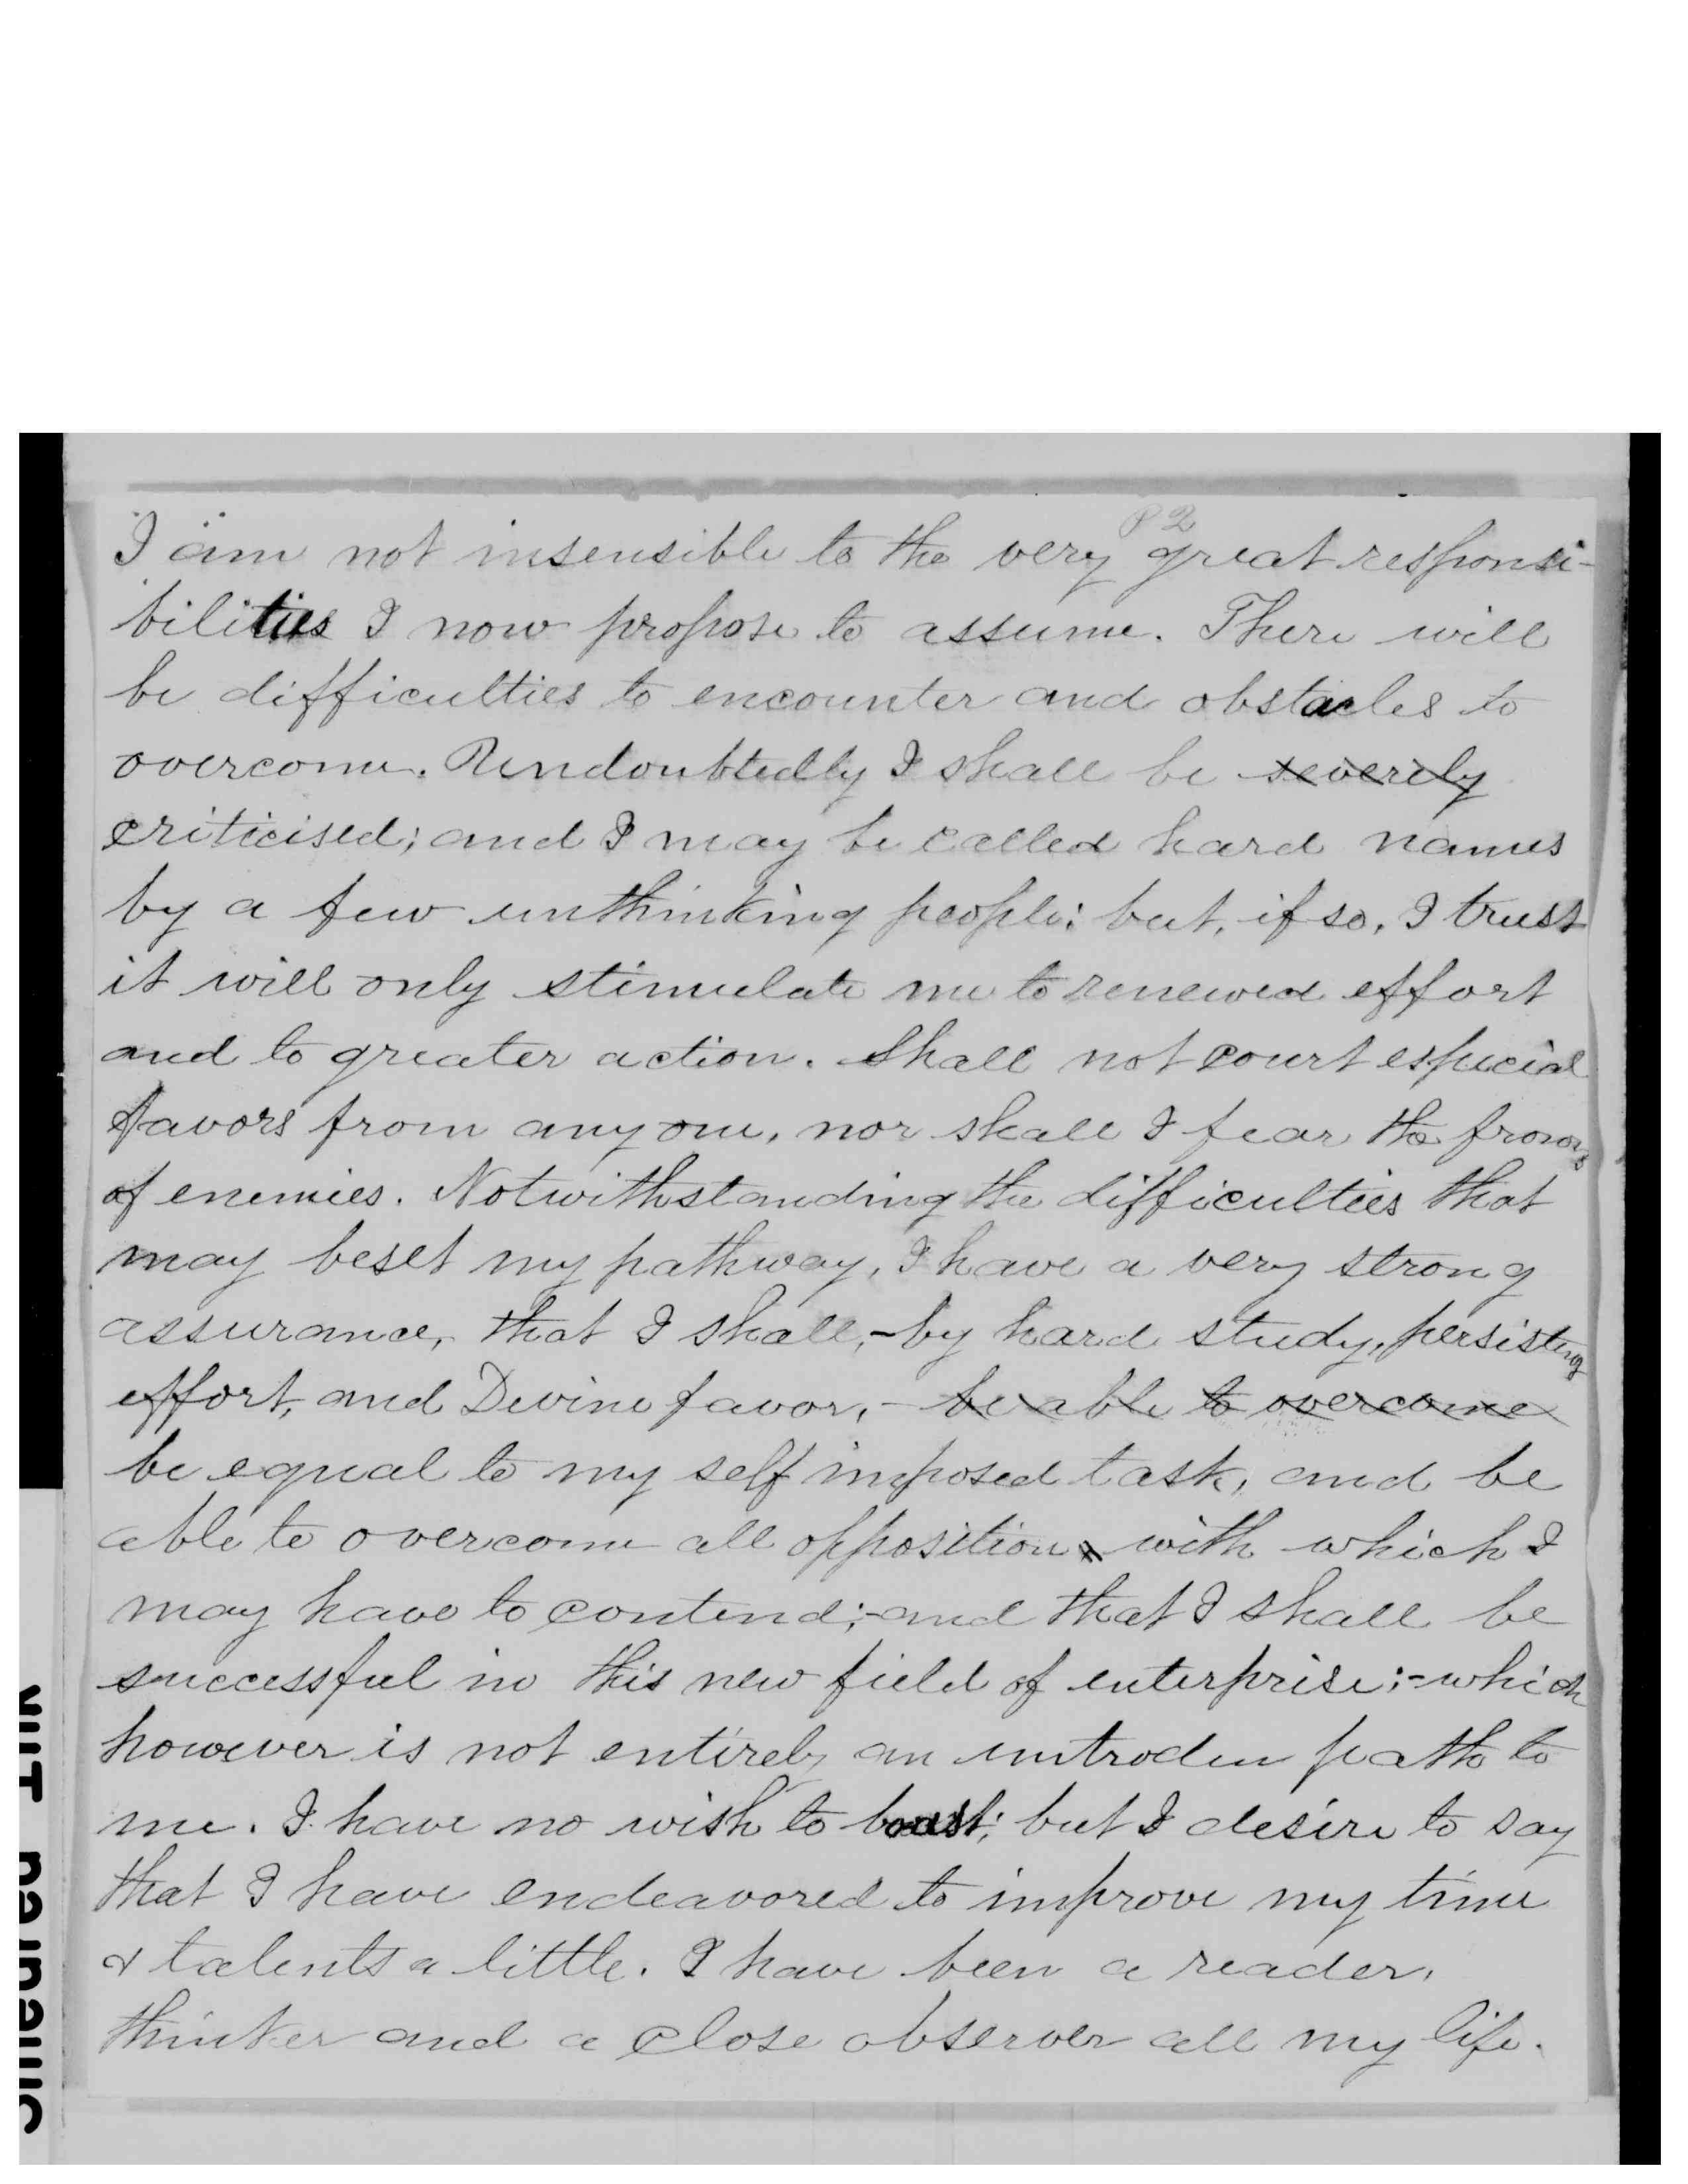 P 2
I am not insensible to the very great responsi-
bilities I now propose to assume. There will
be difficulties to encounter and obstacles to
overcome. Undoubtedly I shall be severely
criticised; and I may be called hard names
by a few unthinking people; but, if so, I trust
it will only stimulate me to renewed effort
and to greater action. Shall not court especial
favors from any one, nor shall I fear the frowns
of enemies. Notwithstanding the difficulties that
may beset my pathway, I have a very strong
assurance, that I shall,-by hard study, persisting
effort, and Devine favor,- be able to overcome
be equal to my self imposed task, and be
able to overcome all opposition with which I
may have to contend;-and that I shall be
successful in this new field of enterprise;-which
however is not entirely an untroden path to
me. I have no wish to boast; but I desire to say
that I have endeavored to improve my time
& talents a little. I have been a reader,
thinker and a close observer all my life.